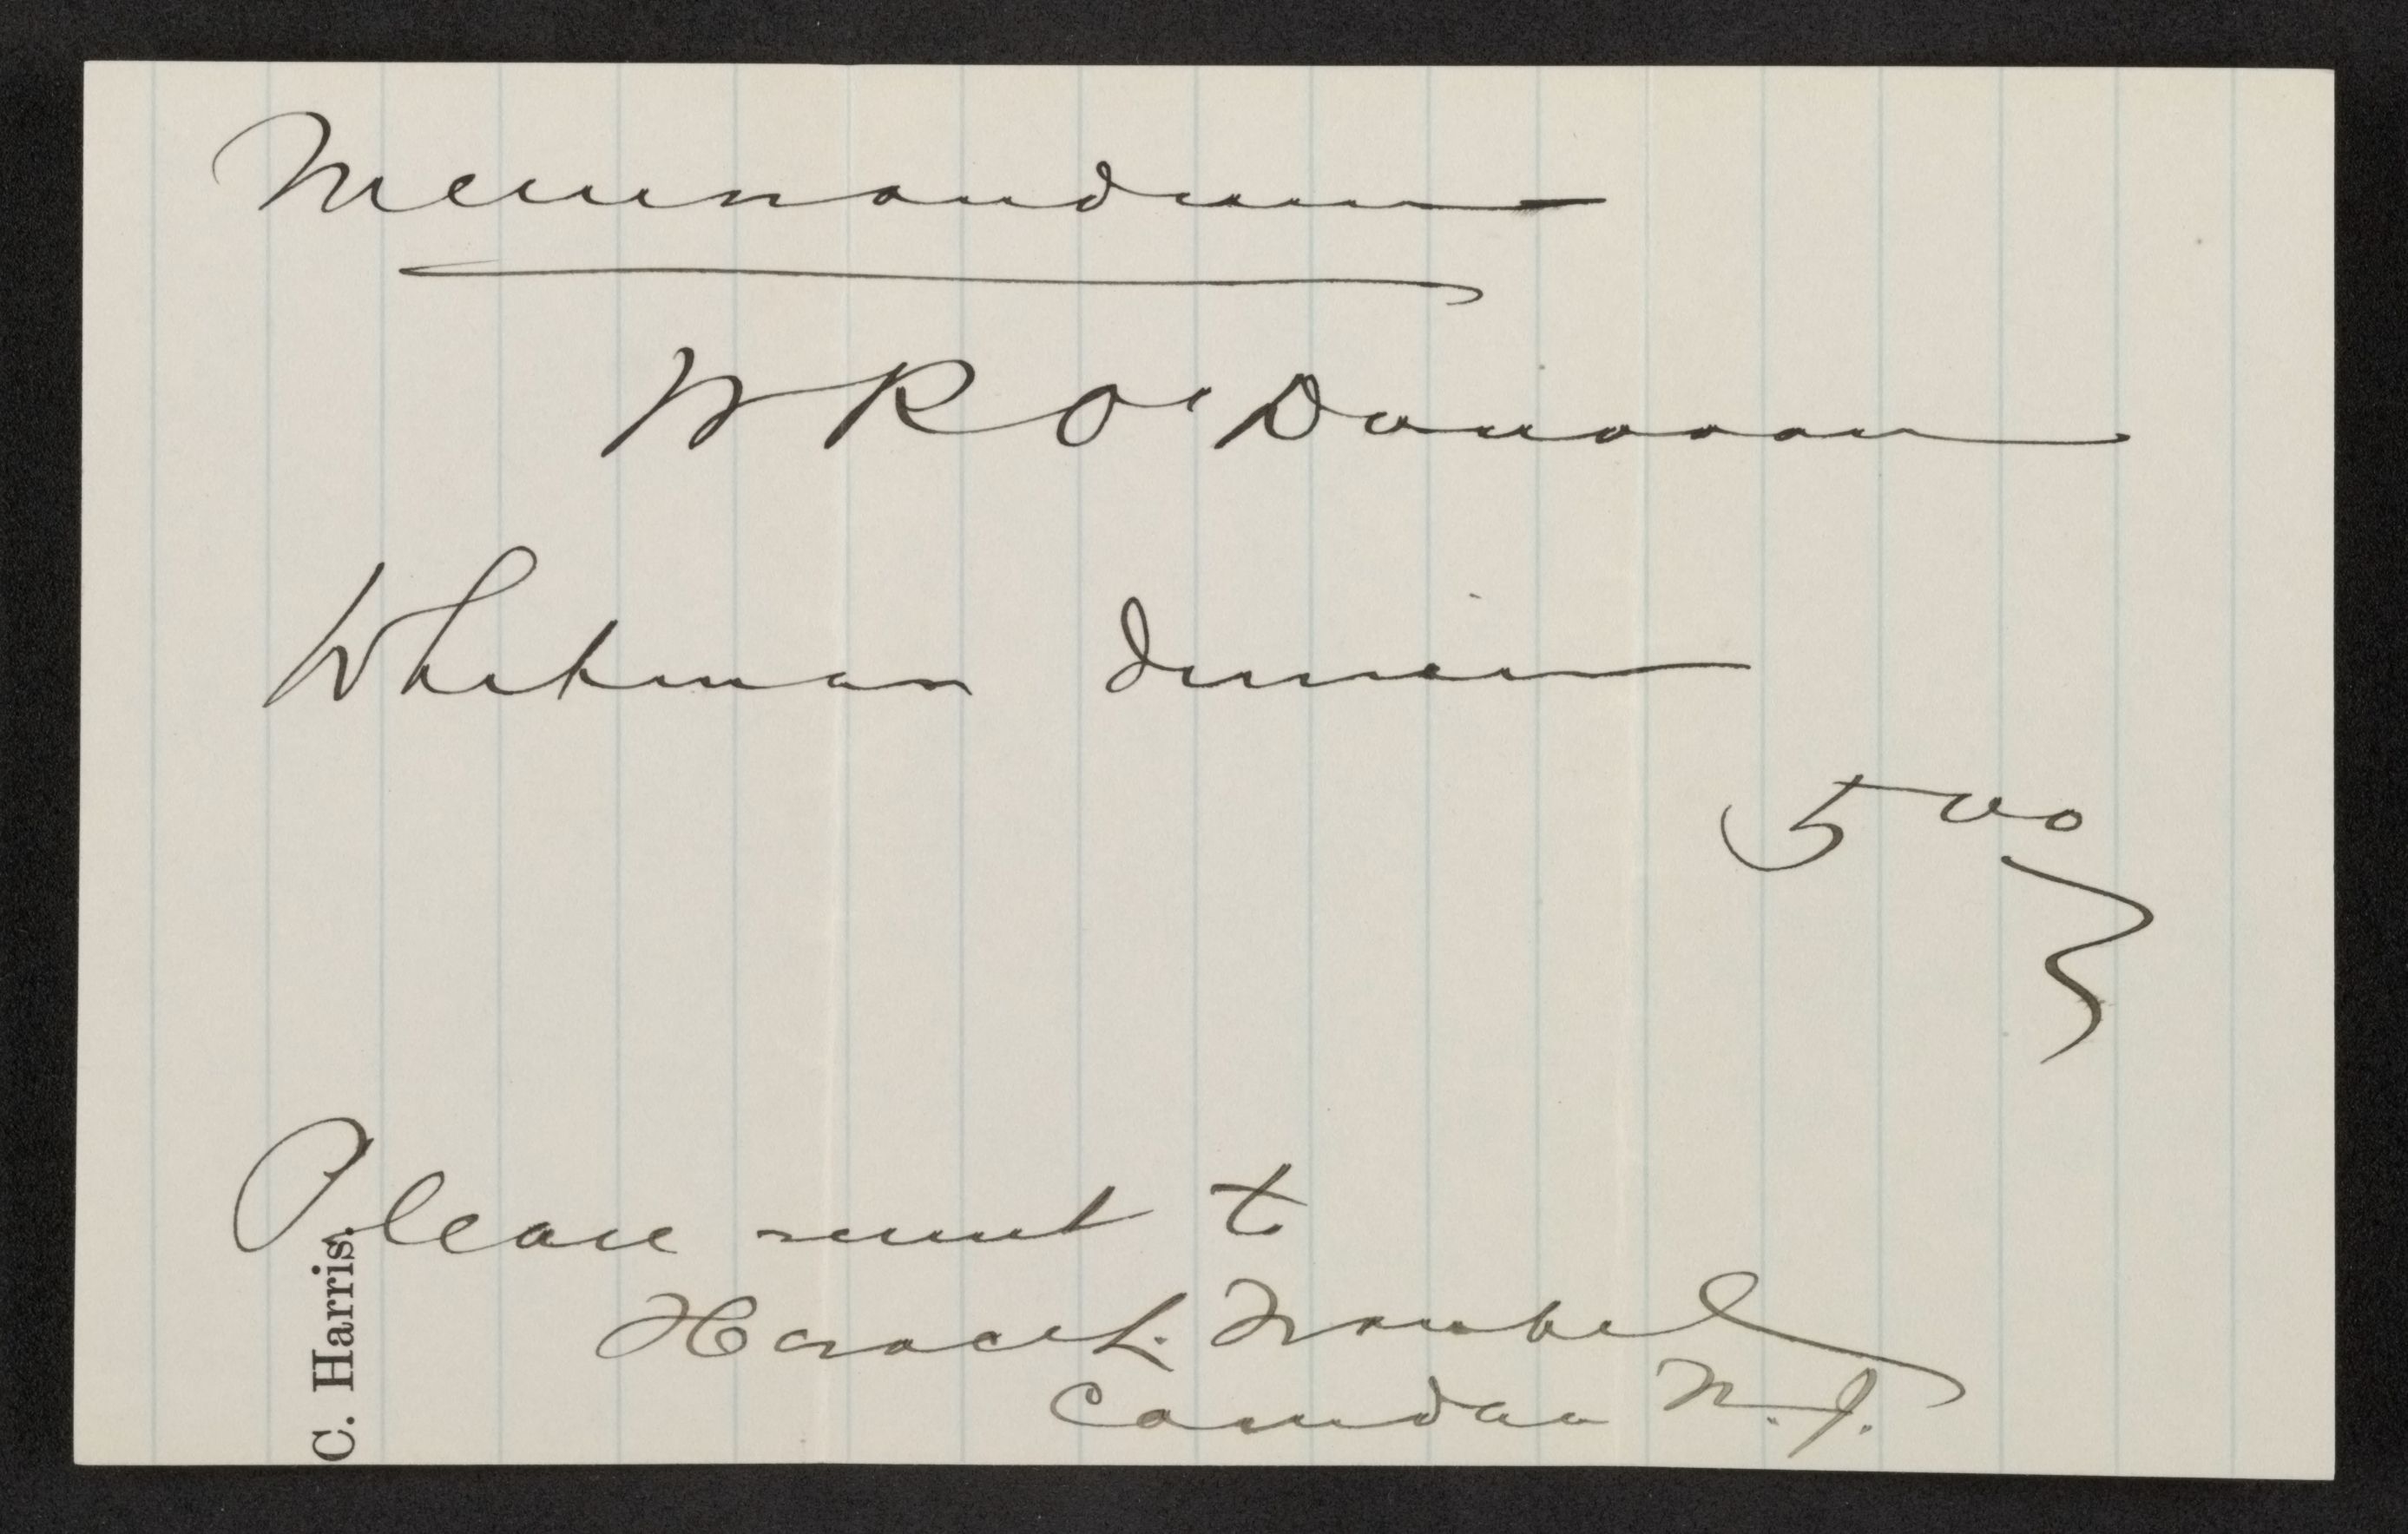 Memorandum
W R O'Donovan
Whitman dinner
500
Please remit to
Horace L. Traubel
Camden N. J.
C. Harris.